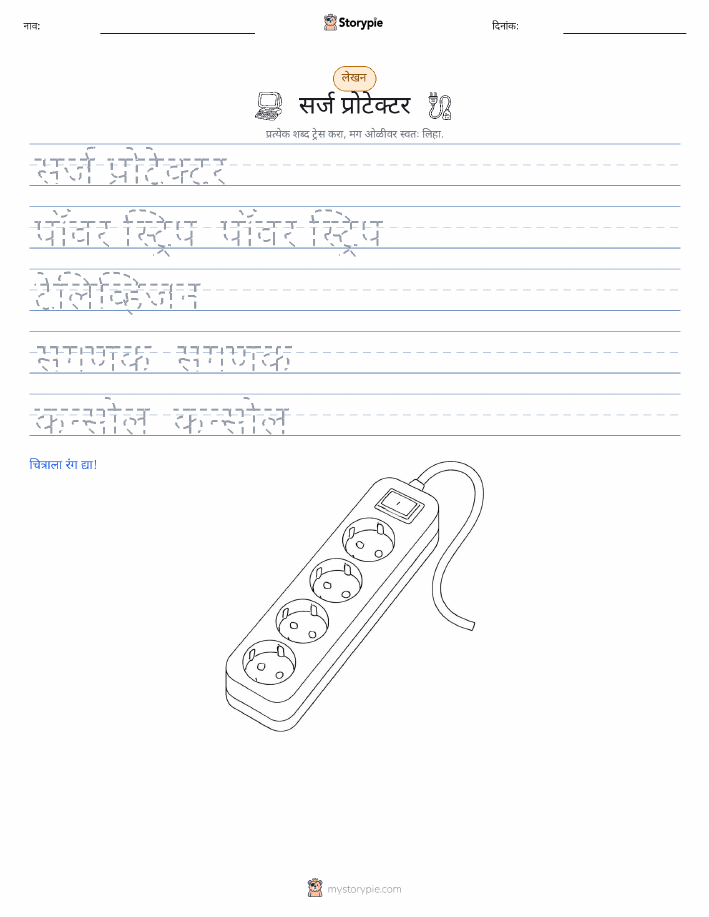 नाव:
Storypie
दिनांक:
लेखन
सर्ज प्रोटेक्टर
प्रत्येक शब्द ट्रेस करा, मग ओळीवर स्वतः लिहा.
सर्ज प्रोटेक्टर
पॉवर स्ट्रिप पॉवर स्ट्रिप
टेलिव्हिजन
संगणक संगणक
कन्सोल कन्सोल
चित्राला रंग द्या!
mystorypie.com